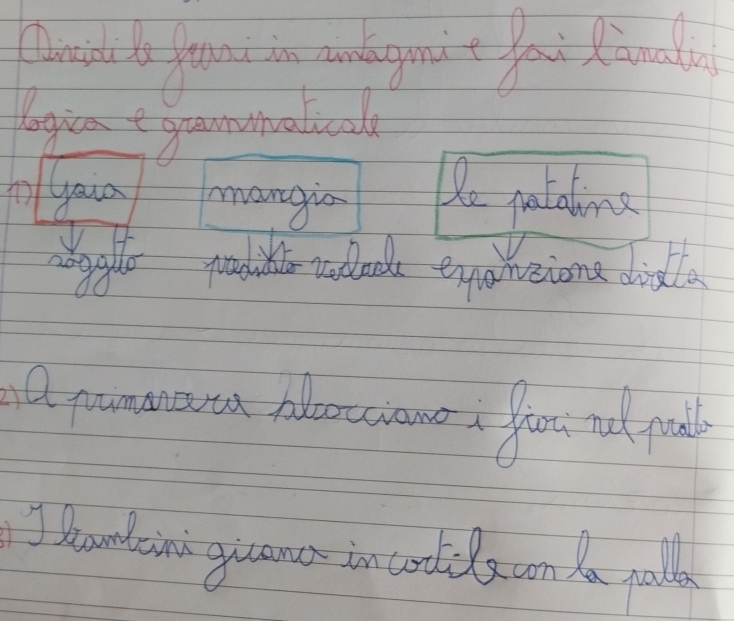 Dividi le frasi in sintagmi e fai l'ànalisi
logica e grammaticale
1) Gaia mangia le patatine
soggtto predikto verbale expanzione diretta
2) A primavera sbocciano i fiori nel pratto
3) I bambini gicano in cortile con la palla